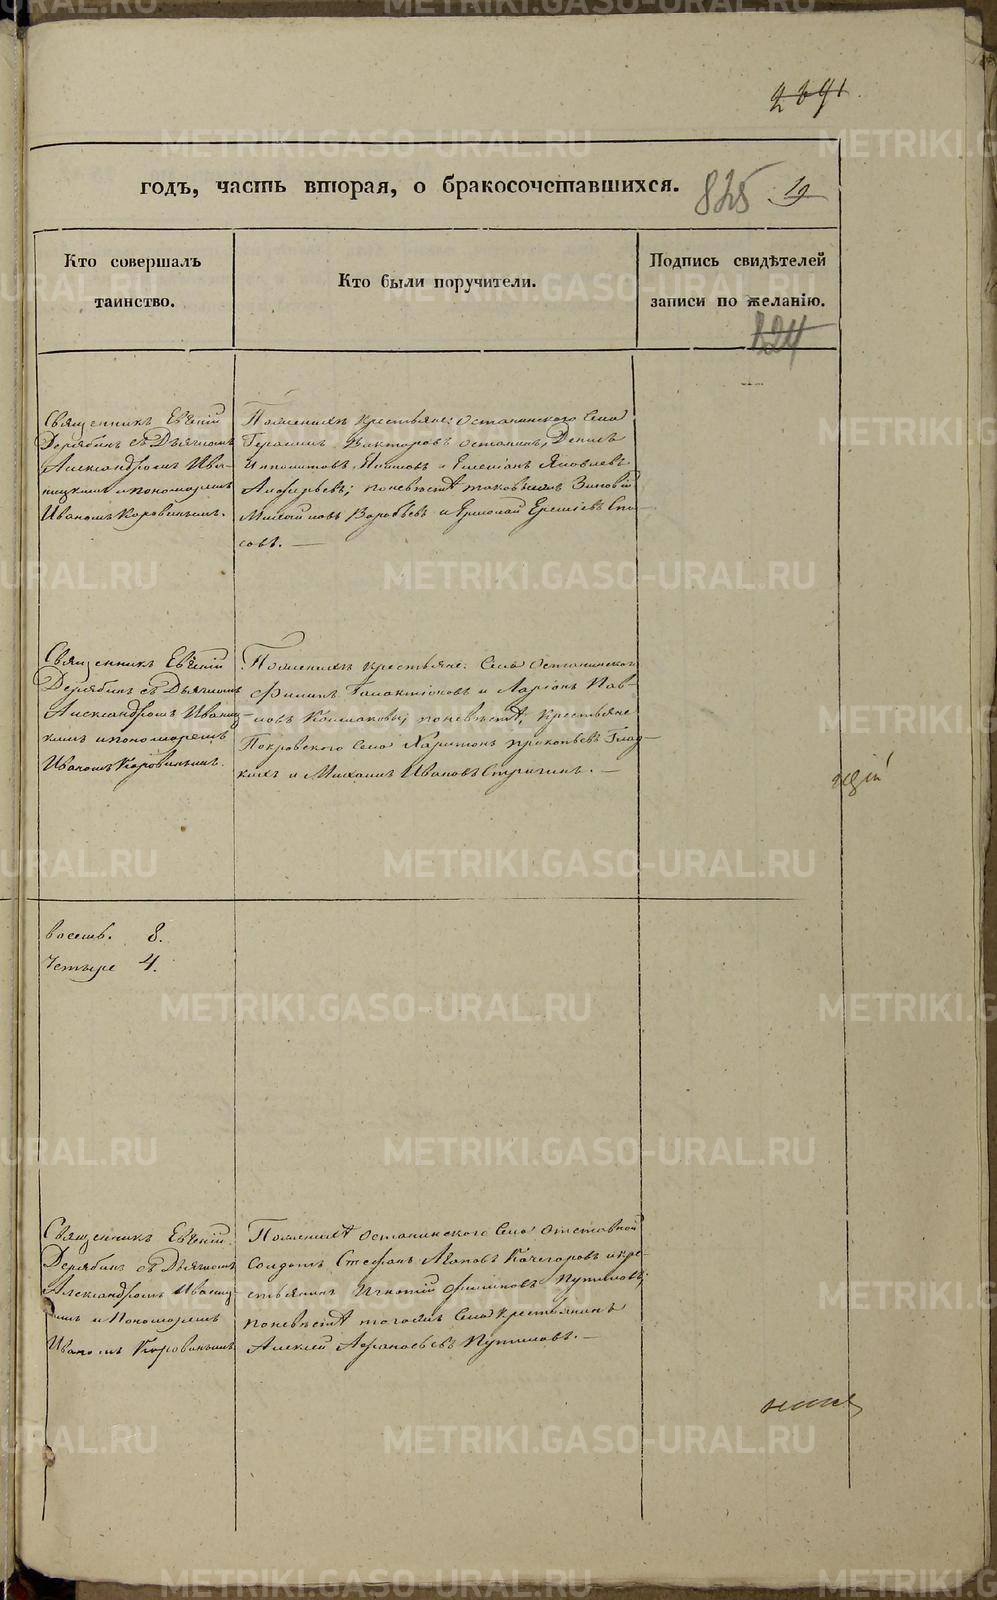 годъ, часть вторая, о бракосочетавшихся.
825
19
Кто совершалъ
таинство.
Кто были поручители.
Подпись свидѣтелей
записи по желанію.
824
Священникъ Евгеній
Дерябинъ съ Дьячкомъ
Александромъ Ива-
ницкимъ и пономоремъ
Иваномъ Коровинымъ.
По женихѣ крестьяне: Останинского Села
Герасимъ Викторовъ Останинъ, Денисъ
Ипполитовъ и Емеліанъ Яковлевъ
по невѣстѣ таковыеже Зиновій
Воробьевъ и Ермолай Еремѣевъ Спа-
совъ. —
Священникъ Евгеній
Дерябинъ съ Дьячкомъ
Александромъ Иваниц-
кимъ и пономоремъ
Иваномъ Коровинымъ.
По женихѣ крестьяне: Села Останинского
Филипъ Галактіоновъ и Ларіонъ Пав-
ловъ Колмаковы; по невѣстѣ, крестьяне
Покровского Села Харитонъ Прокопьевъ Глад-
кихъ и Михаилъ Ивановъ Стригинъ. —
восемь. 8.
Четыре 4.
Священникъ Евгеній
Дерябинъ съ Дьячкомъ
Александромъ Иваниц-
кимъ и Пономоремъ
Иваномъ Коровинымъ
По женихѣ Останинского Села отставной
Солдатъ Стефанъ Агаповъ Качегаровъ и кре-
стьянинъ Игнатій Филиповъ Путиловъ;
по невѣстѣ тогоже Села крестьянинъ
Алексѣй Афанасьевъ Путиловъ. —
METRIKI.GASO-URAL.RU